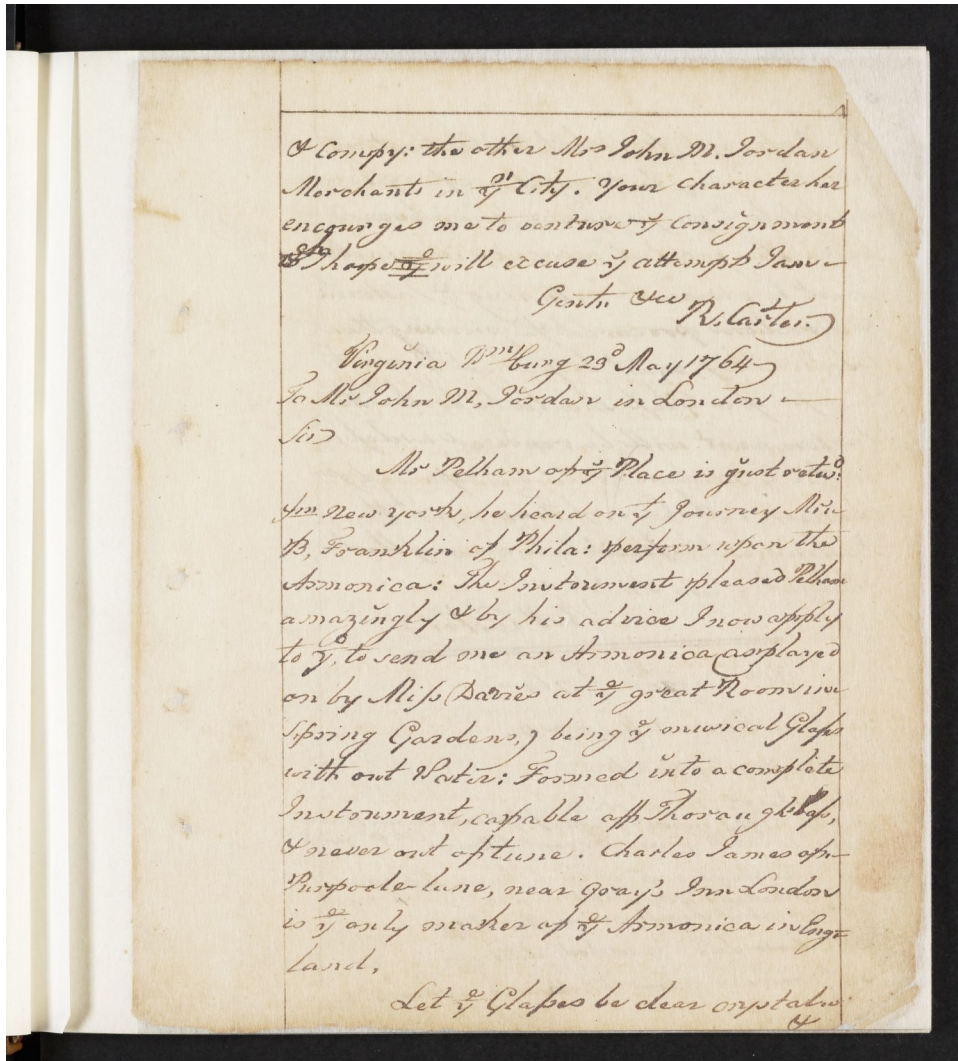 & Compy: the other Mr John M. Jordan
Merchants in yt City. Your Character has
encourges me to venture ys Consignment
I hope will excuse ye attempt I am
Gentn &ca
R. Carter.
Virginia Wmsburg 23d May 1764
To Mr John M, Jordan in London
Sir
Mr Pelham of ys Place is just retud:
frm New york, he heard on yt Journey Mr
B, Franklin of Phila: perform upon the
Armonica: The Instrument pleased Pelham
amazingly & by his advice I now apply
to yo to send me an Armonica (as played
on by Miss Davies at ye great Room in
Spring Gardens,) being ye musical Glass
with out Water: Formed into a complete
Instrument, capable of Thoraugh bass,
& never out of tune. Charles James of
Purpoole lane, near Gray's Inn London
is ye only maker of ye Armonica in Eng=
land.
Let ye Glasses be clear crystal
&